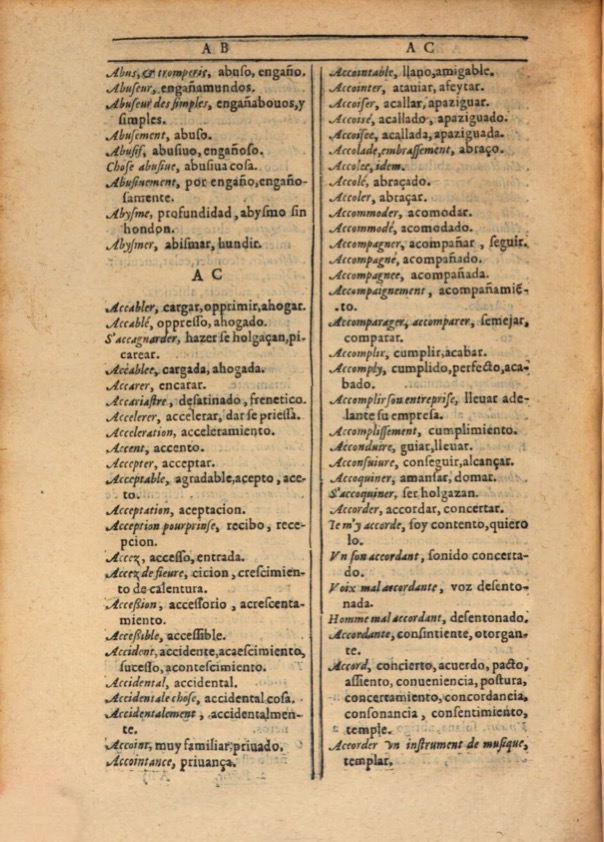 A B
Abus, & tromperis, abuso, engaño.
Abuseur, engañamundos.
Abuseur des simples, engañabouos, y
simples.
Abusement, abuso.
Abusif, abusiuo, engañoso.
Chose abusiue, abusiua cosa.
Abusinement, por engaño, engaño-
samente.
Abysme, profundidad, abysmo sin
hondon.
Abysmer, abismar, hundir.
A C
Accabler, cargar, opprimir, ahogar.
Accablé, oppresso, ahogado.
S'accagnarder, hazer se holgaçan, pi-
carear.
Accablee, cargada, ahogada.
Accarer, encarar.
Accariastre, desatinado, frenetico.
Accelerer, accelerar, dar se priessa.
Acceleration, acceleramiento.
Accent, accento.
Accepter, acceptar.
Acceptable, agradable, acepto, ace-
to.
Acceptation, aceptacion.
Acception pour prinse, recibo, rece-
pcion.
Accez, accesso, entrada.
Accez de fieure, cicion, crescimien-
to de calentura.
Acceßion, accessorio, acrescenta-
miento.
Acceßible, accessible.
Accident, accidente, acaescimiento,
sucesso, acontescimiento.
Accidental, accidental.
Accidentale chose, accidental cosa.
Accidentalement, accidentalmen-
te.
Accoint, muy familiar, priuado.
Accointance, priuança.
A C
Accointable, llano, amigable.
Accointer, atauiar, afeytar.
Accoiser, acallar, apaziguar.
Accoisé, acallado, apaziguado.
Accoisee, acallada, apaziguada.
Accolade, embrassement, abraço.
Accolee, idem.
Accolé, abraçado.
Accoler, abraçar.
Accommoder, acomodar.
Accommodé, acomodado.
Accompagner, acompañar, seguir.
Accompagné, acompañado.
Accompagnee, acompañada.
Accompaignement, acompañamiē-
to.
Accomparager, accomparer, semejar,
comparar.
Accomplir, cumplir, acabar.
Accomply, cumplido, perfecto, aca-
bado.
Accomplir son entreprise, lleuar ade-
lante su empresa.
Accomplissement, cumplimiento.
Acconduire, guiar, lleuar.
Acconsuiure, conseguir, alcançar.
Accoquiner, amansar, domar.
S'accoquiner, ser holgazan.
Accorder, accordar, concertar.
Ie m'y accorde, soy contento, quiero
lo.
Vn son accordant, sonido concerta-
do.
Voix mal accordante, voz desento-
nada.
Homme mal accordant, desentonado.
Accordante, consintiente, otorgan-
te.
Accord, concierto, acuerdo, pacto,
assiento, conueniencia, postura,
concertamiento, concordancia,
consonancia, consentimiento,
temple.
Accorder vn instrument de musique,
templar.